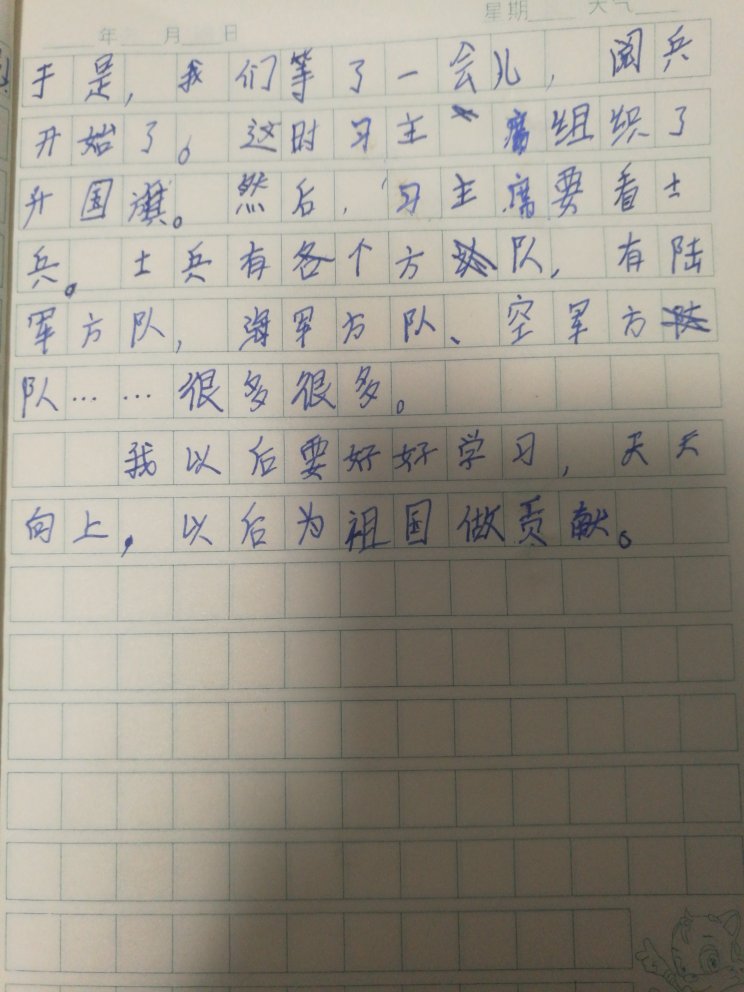 星期 天气
年 月 日
于是，我们等了一会儿，阅兵
开始了。这时习主席组织了
升国旗。然后，习主席要看士
兵。士兵有各个方队，有陆
军方队，海军方队、空军方
队……很多很多。
我以后要好好学习，天天
向上，以后为祖国做贡献。